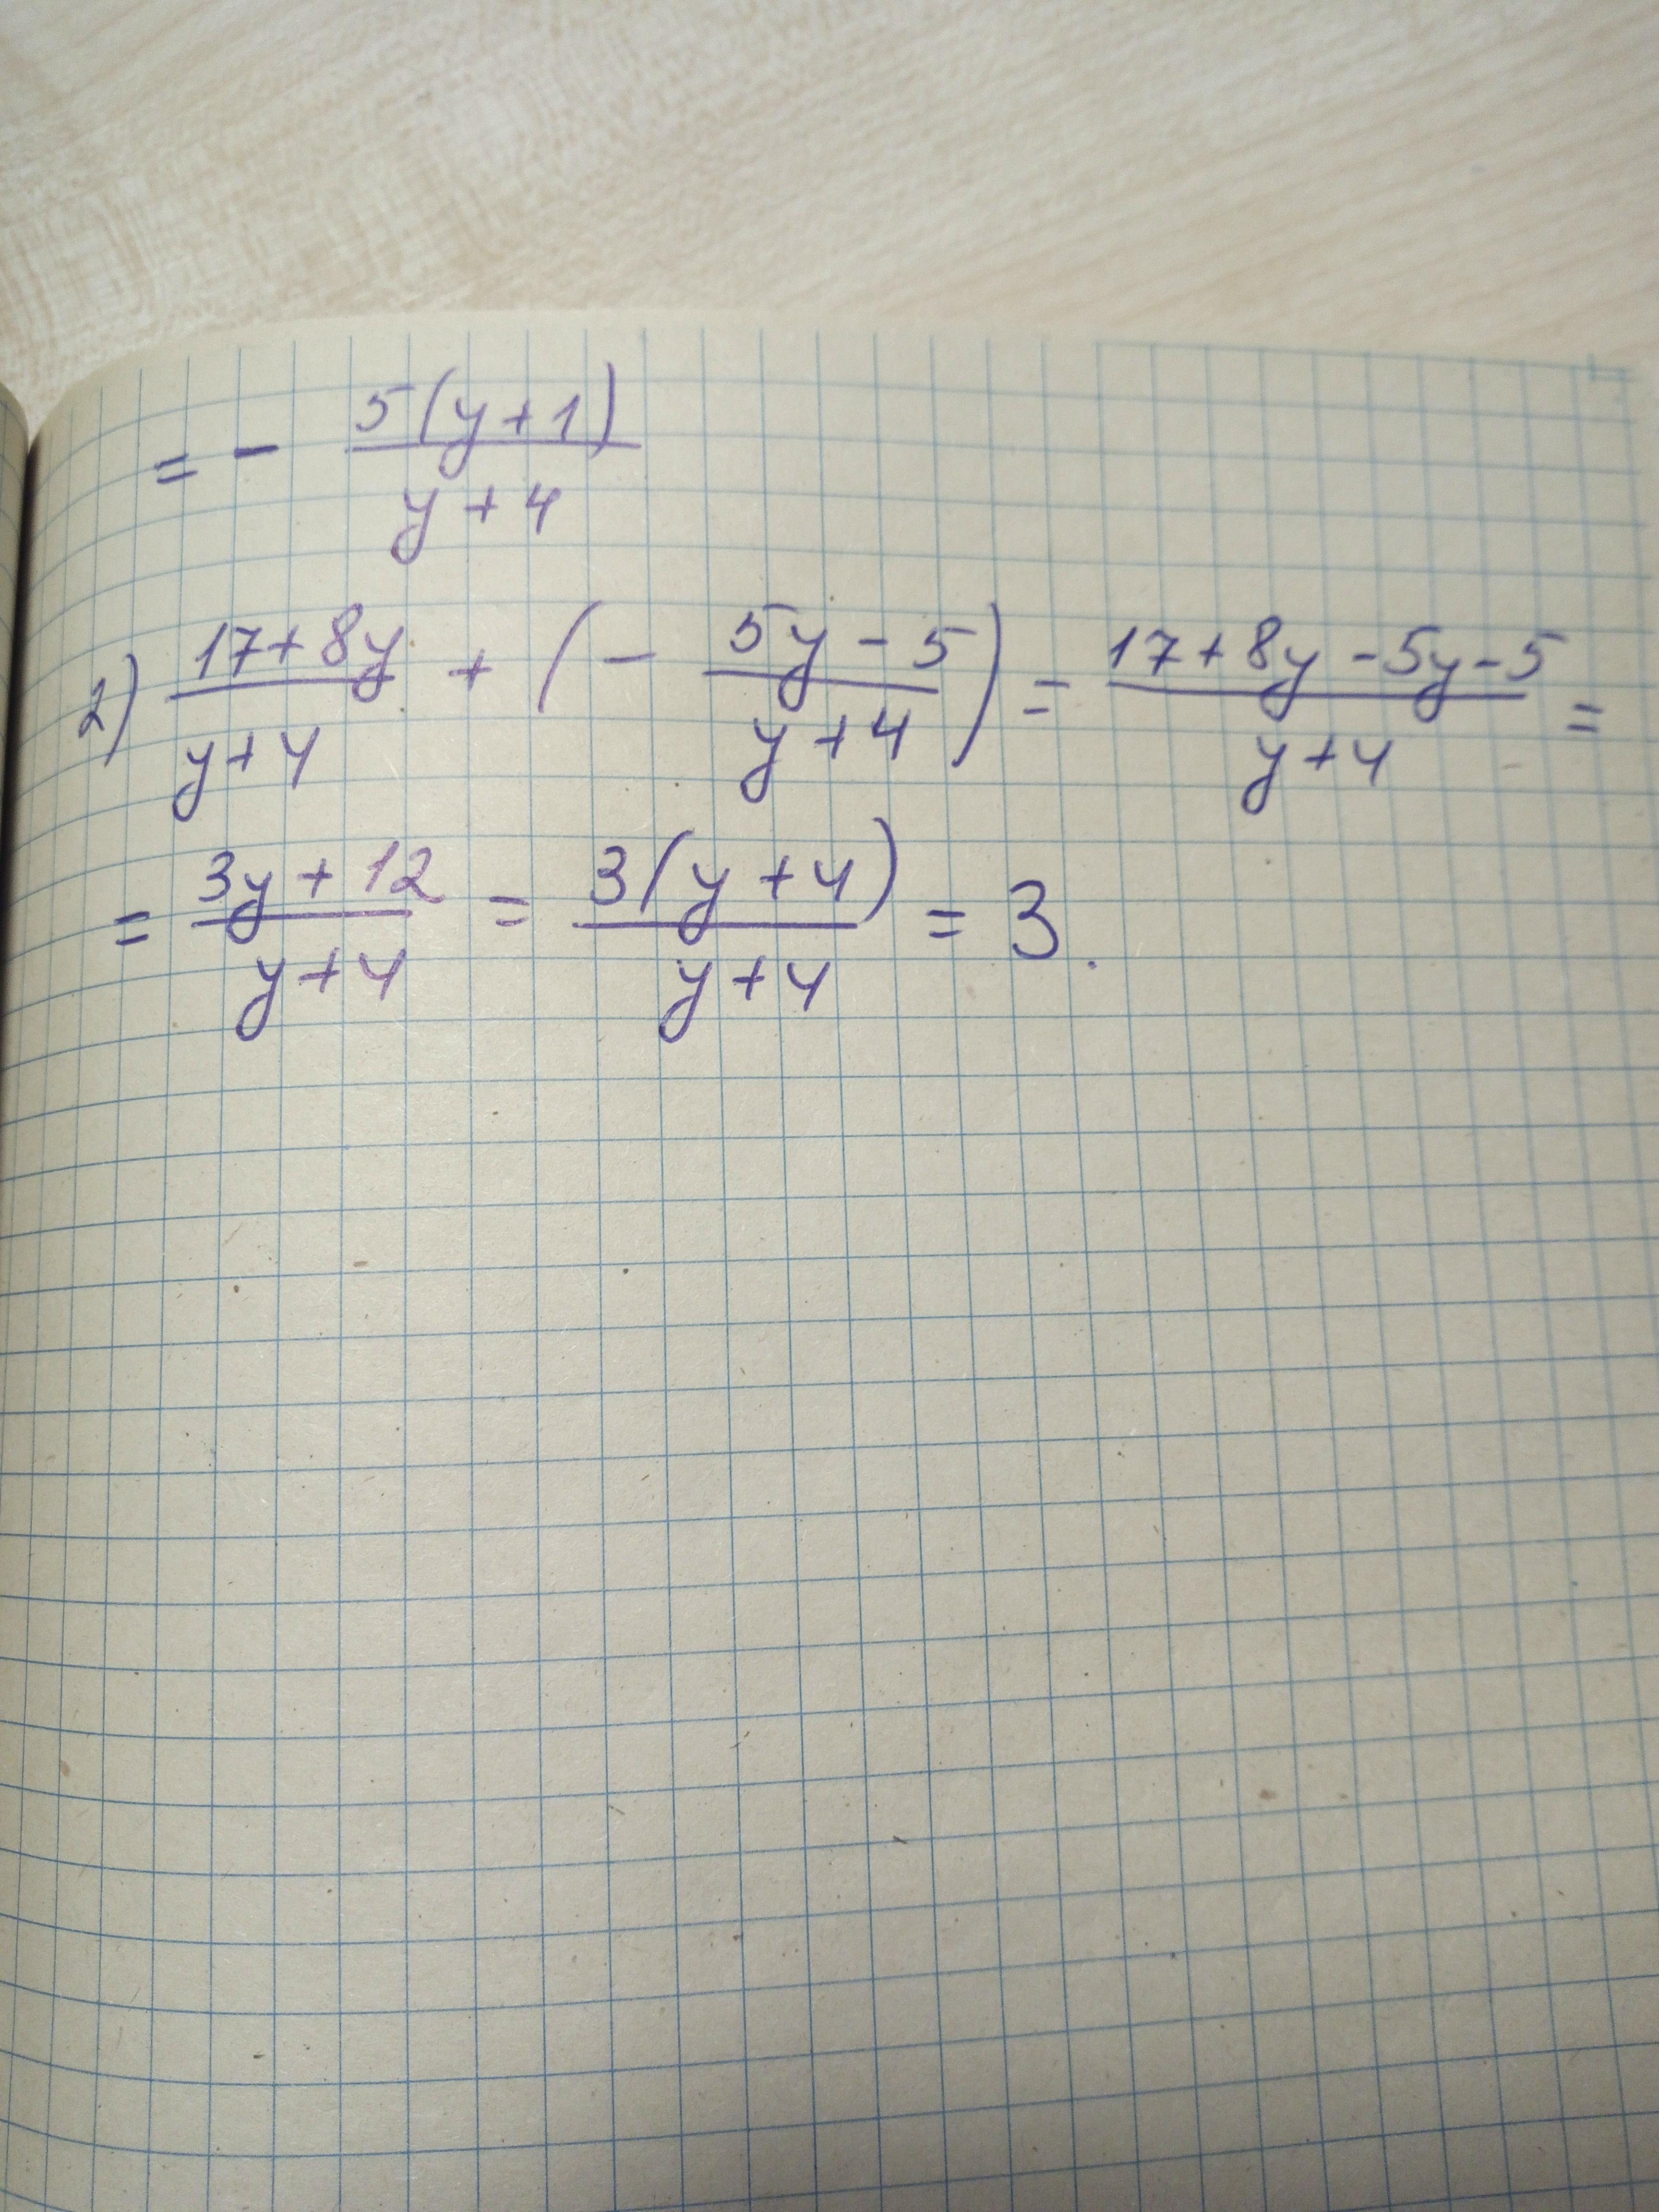 = - 5(y+1) / y+4
2) 17+8y / y+4 + (- 5y-5 / y+4) = 17+8y-5y-5 / y+4 =
= 3y+12 / y+4 = 3(y+4) / y+4 = 3.